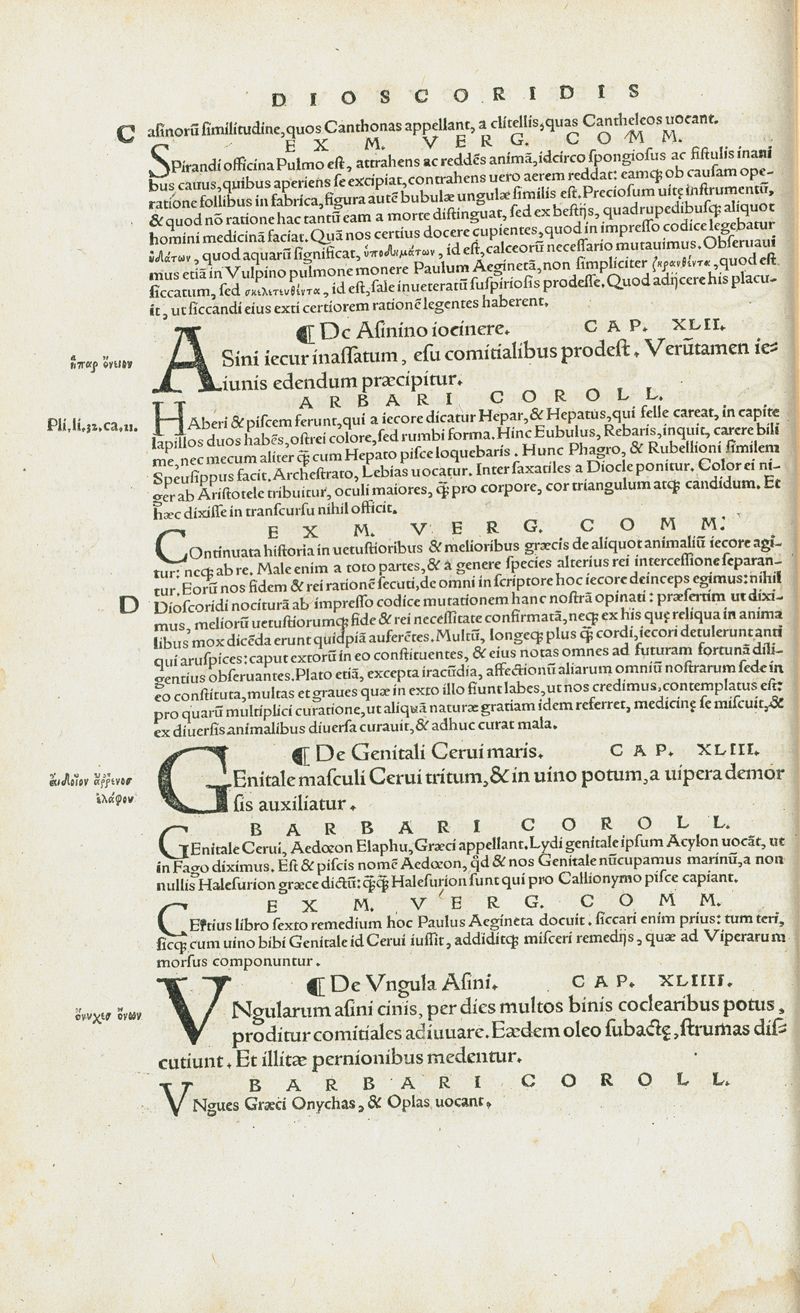 DIOSCORIDIS
C
asinorū similitudine, quos Canthonas appellant, a clitellis, quas Cantheleos uocant.
EX M. VERG. COMM.
SPirandi officina Pulmo est, attrahens ac reddēs animā, idcirco spongiosus ac fistulis inani
bus cauus, quibus aperiens se excipiat, contrahens uero aerem reddat: eamq; ob causam ope-
ratione follibus in fabrica, figura autē bubulæ ungulæ similis est. Preciosum uitę instrumentū,
& quod nō ratione hac tantū eam a morte distinguat, sed ex bestijs, quadrupedibusq; aliquot
homini medicinā faciat. Quā nos certius docere cupientes, quod in impresso codice legebatur
ὑδάτων, quod aquarū significat, ὑποδημάτων, id est, calceorū necessario mutauimus. Obseruaui
mus etiā in Vulpino pulmone monere Paulum Aeginetā, non simpliciter ξηρανθέντα, quod est
siccatum, sed σκελετευθέντα, id est, sale inueteratū suspiriosis prodesse. Quod adijcere his placu-
it, ut siccandi eius exti certiorem rationē legentes haberent.
¶ De Asinino iocinere. CAP. XLII.
ἧπαρ ὄνειον
ASini iecur inassatum, esu comitialibus prodest. Verūtamen ie-
iunis edendum præcipitur.
BARBARI COROLL.
Pli. li. 32. ca. 11.
HAberi & piscem ferunt, qui a iecore dicatur Hepar, & Hepatus, qui felle careat, in capite
lapillos duos habēs, ostrei colore, sed rumbi forma. Hinc Eubulus, Rebaris, inquit, carere bili
me, nec mecum aliter q̄ cum Hepato pisce loquebaris. Hunc Phagro, & Rubellioni similem
Speusippus facit. Archestrato, Lebias uocatur. Inter saxatiles a Diocle ponitur. Color ei ni-
ger ab Aristotele tribuitur, oculi maiores, q̄ pro corpore, cor triangulum atq; candidum. Et
hæc dixisse in transcursu nihil officit.
EX M. VERG. COMM.
COntinuata historia in uetustioribus & melioribus græcis de aliquot animaliū iecore agi-
tur: neq; ab re. Male enim a toto partes, & a genere species alterius rei intercessione separan-
tur. Eorū nos fidem & rei rationē secuti, de omni in scriptore hoc iecore deinceps egimus: nihil
D
Dioscoridi nociturā ab impresso codice mutationem hanc nostrā opinati: præsertim ut dixi-
mus, meliorū uetustiorumq; fide & rei necessitate confirmatā, neq; ex his quę reliqua in anima
libus mox dicēda erunt quidpiā auferētes. Multū, longeq; plus q̄ cordi, iecori detulerunt anti
qui aruspices: caput extorū in eo constituentes, & eius notas omnes ad futuram fortunā dili-
gentius obseruantes. Plato etiā, excepta iracūdia, affectionū aliarum omniū nostrarum sede in
eo constituta, multas et graues quæ in exto illo fiunt labes, ut nos credimus, contemplatus est:
pro quarū multiplici curatione, ut aliquā naturæ gratiam idem referret, medicinę se miscuit, &
ex diuersis animalibus diuersa curauit, & adhuc curat mala.
¶ De Genitali Cerui maris. CAP. XLIII.
αἰδοῖον ἄῤῥενος
ἐλάφου
GEnitale masculi Cerui tritum, & in uino potum, a uipera demor
sis auxiliatur.
BARBARI COROLL.
GEnitale Cerui, Aedoeon Elaphu, Græci appellant. Lydi genitale ipsum Acylon uocāt, ut
in Fago diximus. Est & piscis nomē Aedoeon, qd & nos Genitale nūcupamus marinū, a non
nullis Halesurion græce dictū: q̄q̄ Halesurion sunt qui pro Callionymo pisce capiant.
EX M. VERG. COMM.
CErtius libro sexto remedium hoc Paulus Aegineta docuit. siccari enim prius: tum teri,
sicq; cum uino bibi Genitale id Cerui iussit, addiditq; misceri remedijs, quæ ad Viperarum
morsus componuntur.
¶ De Vngula Asini. CAP. XLIIII.
ὄνυχες ὄνων
VNgularum asini cinis, per dies multos binis coclearibus potus,
proditur comitiales adiuuare. Eædem oleo subactę, strumas dis-
cutiunt. Et illitæ pernionibus medentur.
BARBARI COROLL.
VNgues Græci Onychas, & Oplas uocant.